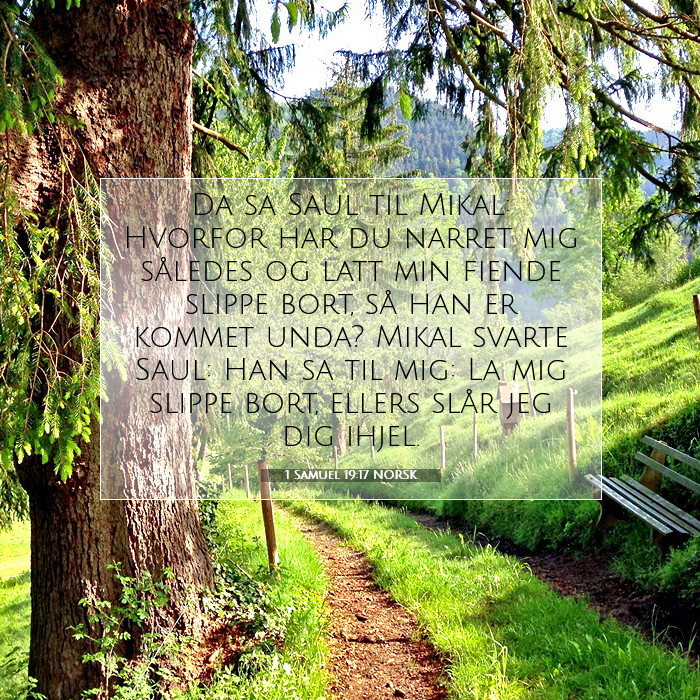 Da sa Saul til Mikal:
Hvorfor har du narret mig
således og latt min fiende
slippe bort, så han er
kommet unda? Mikal svarte
Saul: Han sa til mig: La mig
slippe bort, ellers slår jeg
dig ihjel.
1 SAMUEL 19:17 NORSK